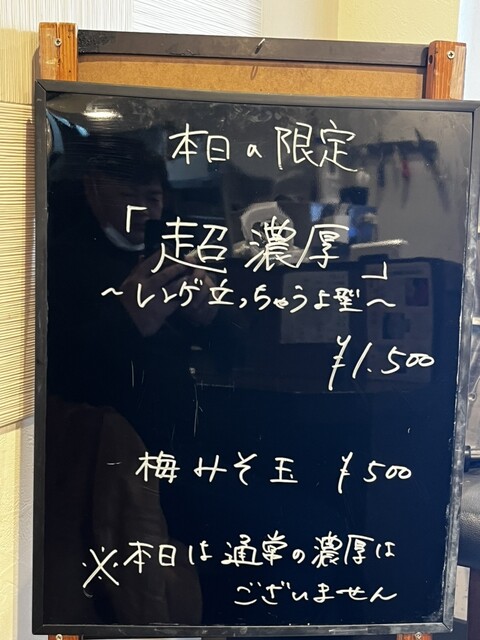 本日の限定
「超濃厚」
～レンゲ立っちゃうよ型～
¥1.500
梅みそ玉 ¥500
※本日は通常の濃厚は
ございません